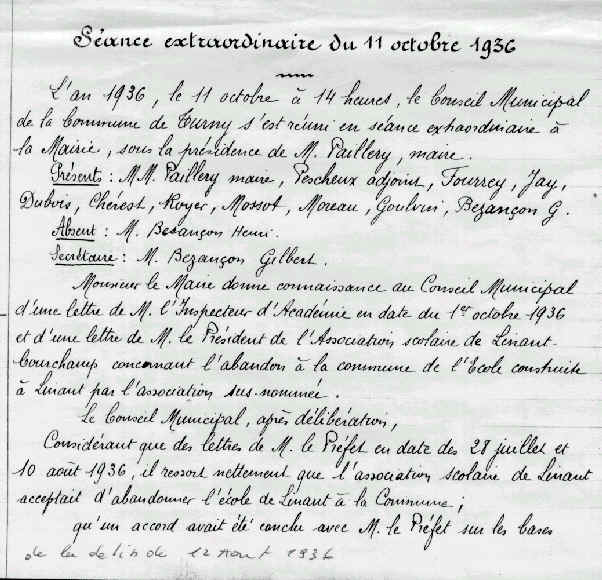 Séance extraordinaire du 11 octobre 1936
L'an 1936, le 11 octobre à 14 heures, le Conseil Municipal
de la Commune de Turny s'est réuni en séance extraordinaire à
la Mairie, sous la présidence de M. Paillery, maire.
Présents : M.M. Paillery maire, Pescheux adjoint, Fourrey, Jay,
Dubois, Chérest, Royer, Mossot, Moreau, Goulvin, Bezançon G.
Absent : M. Besançon Henri.
Secrétaire : M. Bezançon Gilbert.
Monsieur le Maire donne connaissance au Conseil Municipal
d'une lettre de M. l'Inspecteur d'Académie en date du 1er octobre 1936
et d'une lettre de M. le Président de l'Association scolaire de Linant-
Courchamp concernant l'abandon à la commune de l'Ecole construite
à Linant par l'association sus-nommée.
Le Conseil Municipal, après délibération,
Considérant que des lettres de M. le Préfet en date des 28 juillet et
10 août 1936, il ressort nettement que l'association scolaire de Linant
acceptait d'abandonner l'école de Linant à la Commune ;
qu'un accord avait été conclu avec M. le Préfet sur les bases
de la délib de 12 Aout 1936